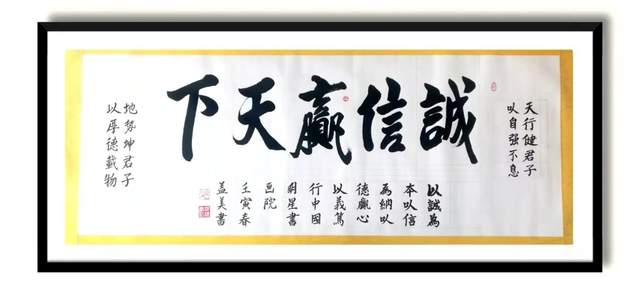 天行健君子
以自强不息
誠信贏天下
以誠為
本以信
為納以
德贏心
以義篤
行中國
明星書
画院
壬寅春
美書
地势坤君子
以厚德載物